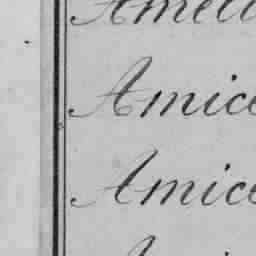 Amelu
Amice
Amice